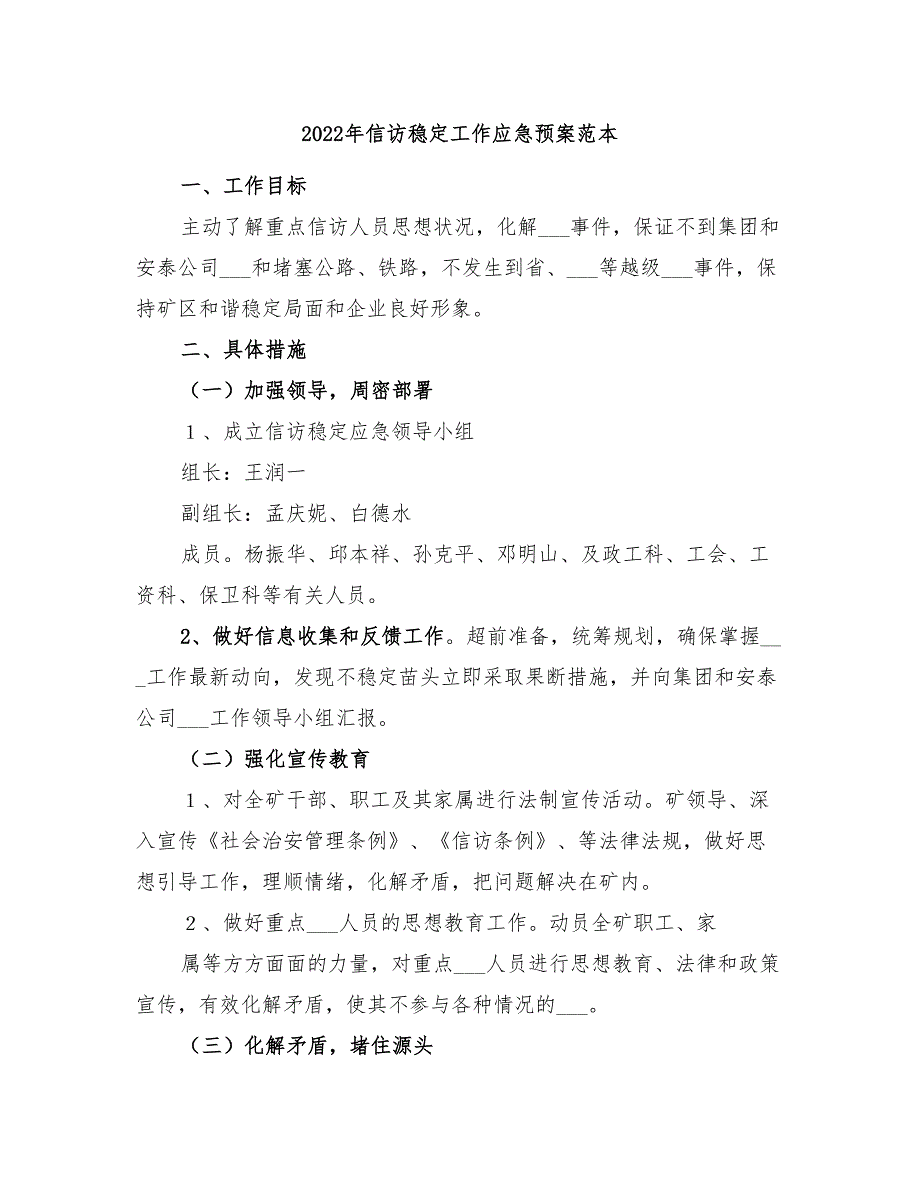 2022年信访稳定工作应急预案范本
一、工作目标
主动了解重点信访人员思想状况，化解___事件，保证不到集团和
安泰公司___和堵塞公路、铁路，不发生到省、___等越级___事件，保
持矿区和谐稳定局面和企业良好形象。
二、具体措施
（一）加强领导，周密部署
１、成立信访稳定应急领导小组
组长：王润一
副组长：孟庆妮、白德水
成员。杨振华、邱本祥、孙克平、邓明山、及政工科、工会、工
资科、保卫科等有关人员。
2、做好信息收集和反馈工作。超前准备，统筹规划，确保掌握__
_工作最新动向，发现不稳定苗头立即采取果断措施，并向集团和安泰
公司___工作领导小组汇报。
（二）强化宣传教育
１、对全矿干部、职工及其家属进行法制宣传活动。矿领导、深
入宣传《社会治安管理条例》、《信访条例》、等法律法规，做好思
想引导工作，理顺情绪，化解矛盾，把问题解决在矿内。
２、做好重点___人员的思想教育工作。动员全矿职工、家
属等方方面面的力量，对重点___人员进行思想教育、法律和政策
宣传，有效化解矛盾，使其不参与各种情况的___。
（三）化解矛盾，堵住源头